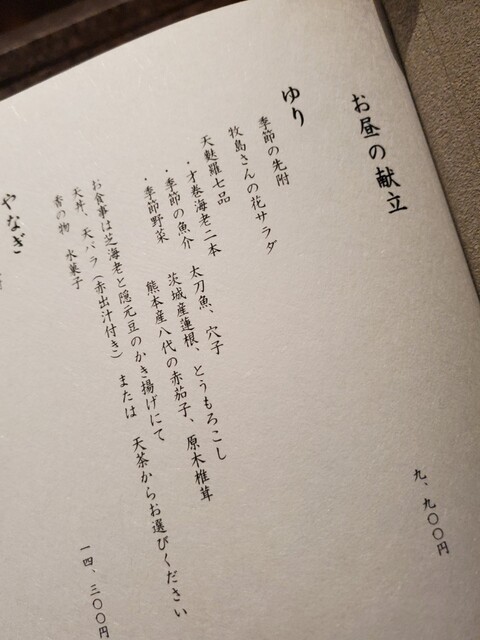 お昼の献立
ゆり
九、九〇〇円
季節の先附
牧島さんの花サラダ
天麩羅七品
・才巻海老二本
・季節の魚介　太刀魚、穴子
・季節野菜　茨城産蓮根、とうもろこし
熊本産八代の赤茄子、原木椎茸
お食事は芝海老と隠元豆のかき揚げにて
天丼、天バラ（赤出汁付き）または　天茶からお選びください
香の物　水菓子
やなぎ
一四、三〇〇円